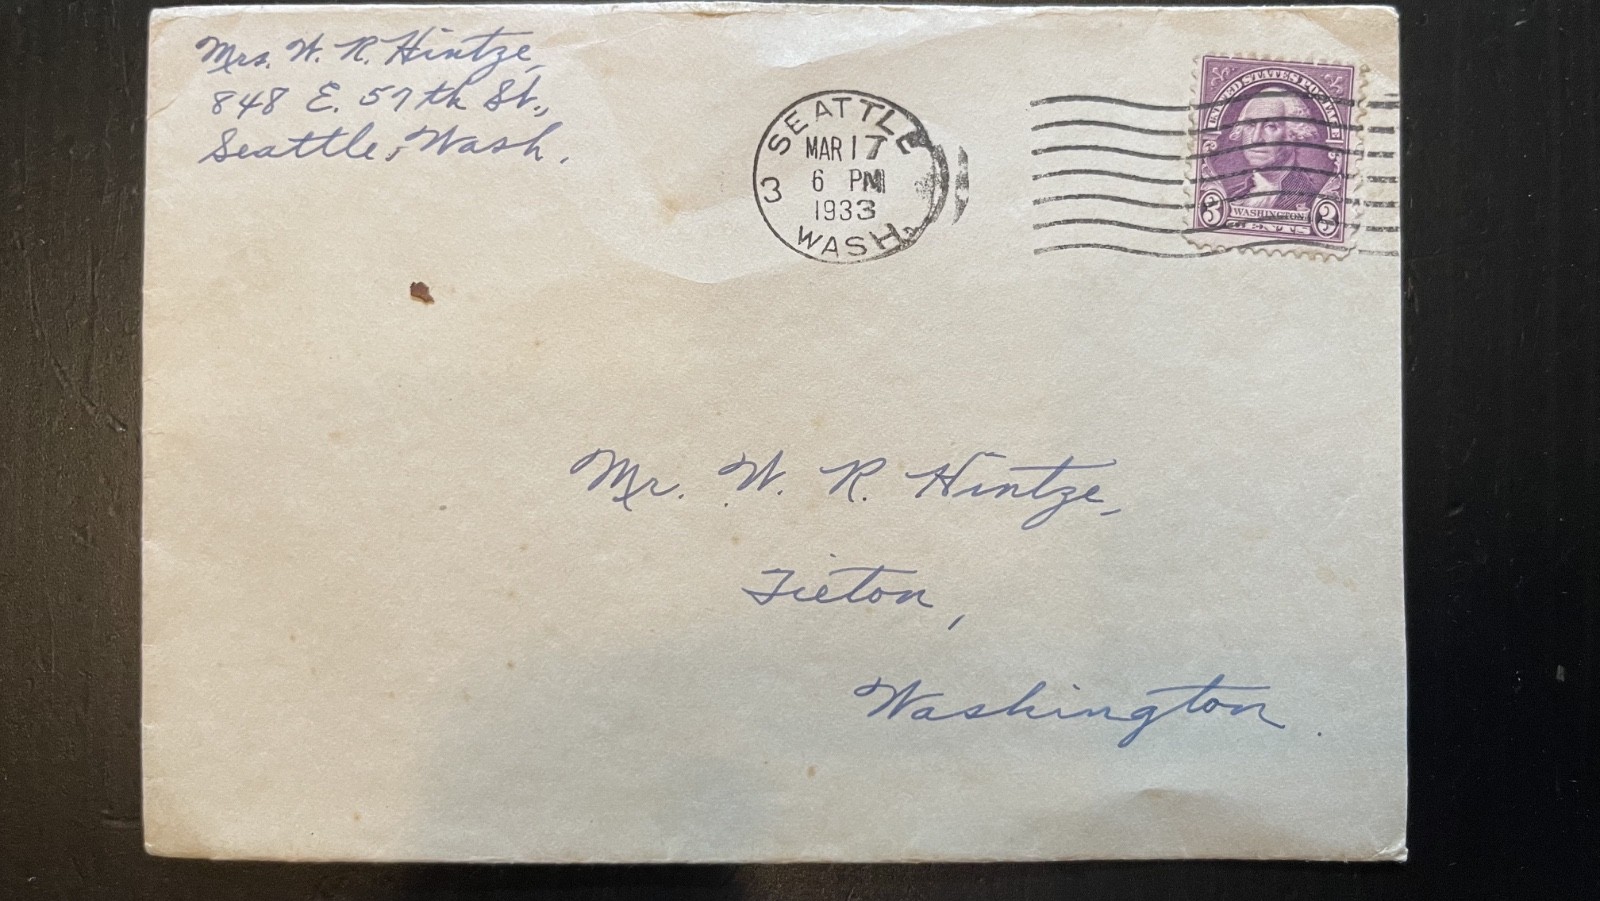 Mrs. W. R. Hintze,
848 E. 57th St.,
Seattle, Wash.
SEATTLE
MAR 17
6 PM
1933
3
WASH
UNITED STATES POSTAGE
3 WASHINGTON 3
CENTS
Mr. W. R. Hintze,
Tieton,
Washington